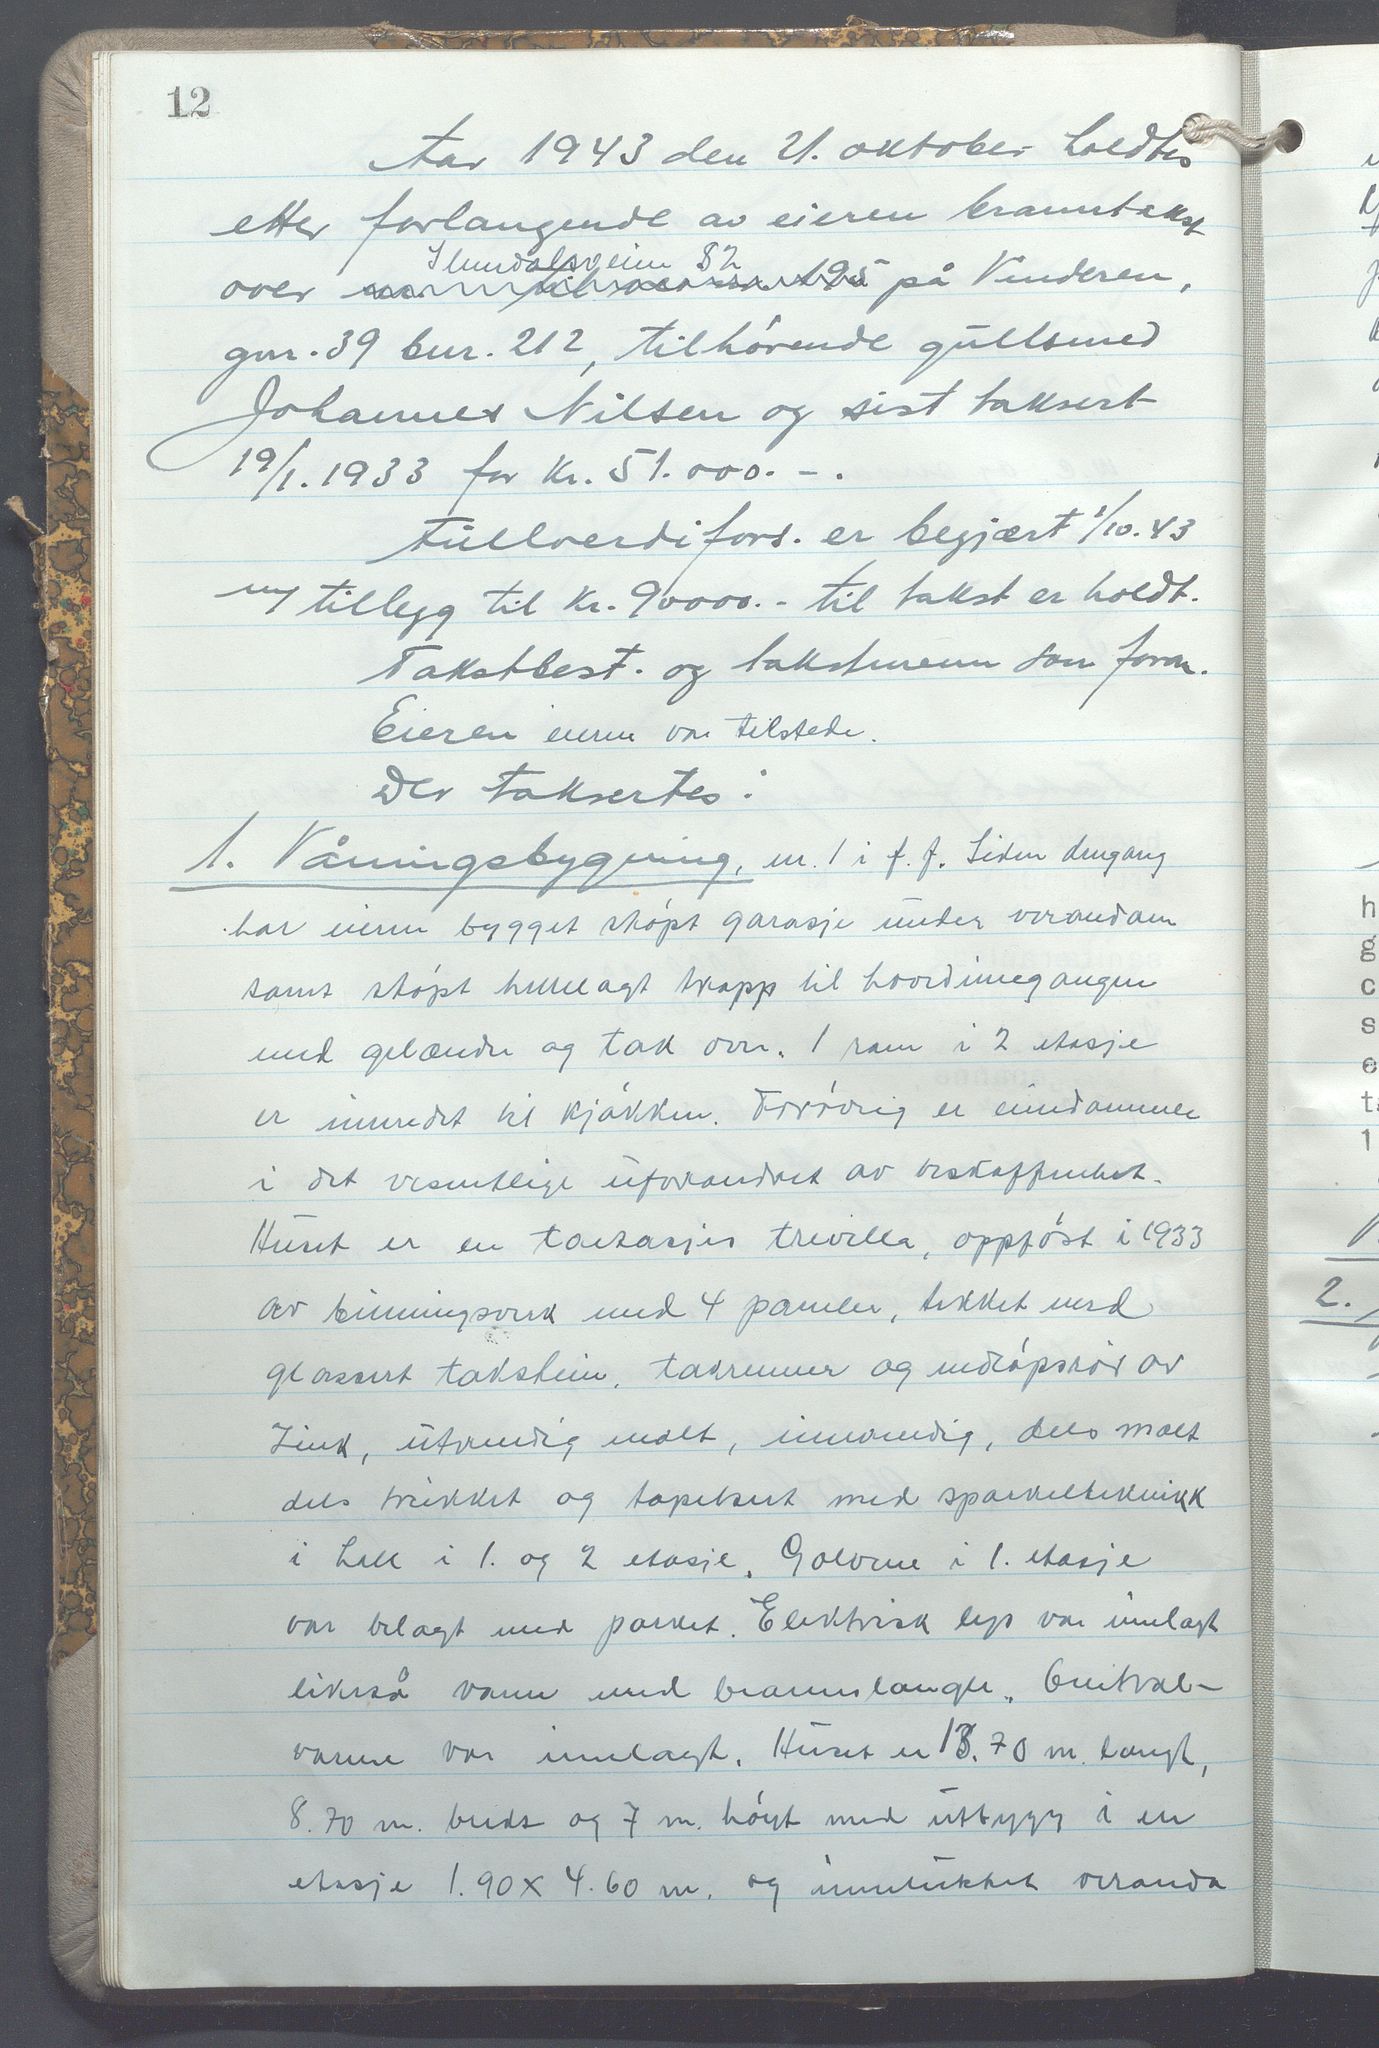 12
Aar 1943 den 21. oktober holdtes
etter forlangende av eieren branntakst
Slemdalsveien 82
over 195 på Vinderen,
gnr. 39 bnr. 212, tilhörende gullsmed
Johannes Nilsen og sist taksert
19/1. 1933 for kr. 51.000.-.
Fullverdifors. er begjært 1/10.43
tillegg til kr. 90000.- til takst er holdt.
Takstbest. og takstmenn som foran.
Eieren var tilstede.
Der taksertes:
1. Våningsbygning, nr. 1 i f. f. Siden dengang
har eieren bygget stöpt garasje under verandaen
samt stöpt hellelagt trapp til hovedinngangen
med gelænder og tak over. 1 rum i 2 etasje
er innredet til kjökken. Forövrig er eiendommen
i det vesentlige uforandret av beskaffenhet.
Huset er en toetasjes trevilla, oppföst i 1933
av binningsverk med 4 paneler, tekket med
glassert takstein, takrenner og nedlöpsrör av
Zink, utvendig malt, innvendig, dels malt
dels trukket og tapetsert med sparkelteknikk
i hall i 1. og 2 etasje. Golvene i 1. etasje
var belagt med parket. Elektrisk lys var innlagt
likeså vann med brannslange. Central-
varme var innlagt. Huset er 13.70 m. langt,
8.70 m. bredt og 7 m. höyt med utbygg i en
etasje 1.90 x 4.60 m. og innelukket veranda
h
g
c
s
e
1
2.